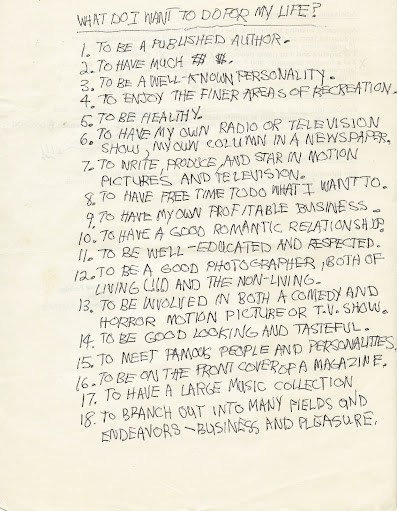 WHAT DO I WANT TO DO FOR MY LIFE?
1. TO BE A PUBLISHED AUTHOR.
2. TO HAVE MUCH $$ $.
3. TO BE A WELL-KNOWN PERSONALITY.
4. TO ENJOY THE FINER AREAS OF RECREATION.
5. TO BE HEALTHY.
6. TO HAVE MY OWN RADIO OR TELEVISION
SHOW, MY OWN COLUMN IN A NEWSPAPER.
7. TO WRITE, PRODUCE, AND STAR IN MOTION
PICTURES AND TELEVISION.
8. TO HAVE FREE TIME TO DO WHAT I WANT TO.
9. TO HAVE MY OWN PROFITABLE BUSINESS.
10. TO HAVE A GOOD ROMANTIC RELATIONSHIP.
11. TO BE WELL-EDUCATED AND RESPECTED.
12. TO BE A GOOD PHOTOGRAPHER, BOTH OF
LIVING AND THE NON-LIVING.
13. TO BE INVOLVED IN BOTH A COMEDY AND
HORROR MOTION PICTURE OR T.V. SHOW.
14. TO BE GOOD LOOKING AND TASTEFUL.
15. TO MEET FAMOUS PEOPLE AND PERSONALITIES.
16. TO BE ON THE FRONT COVER OF A MAGAZINE.
17. TO HAVE A LARGE MUSIC COLLECTION
18. TO BRANCH OUT INTO MANY FIELDS AND
ENDEAVORS - BUSINESS AND PLEASURE.